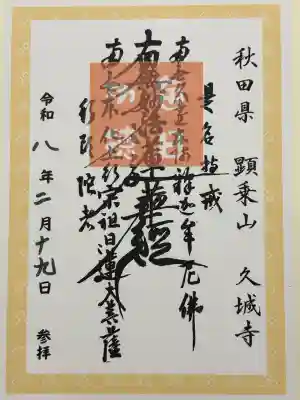 秋田県 顕乗山 久城寺
是名持戒
南無久遠実成釋迦牟尼佛
南無妙法蓮華経
南無末法主師宗祖日蓮大菩薩
令和八年二月十九日 参拝